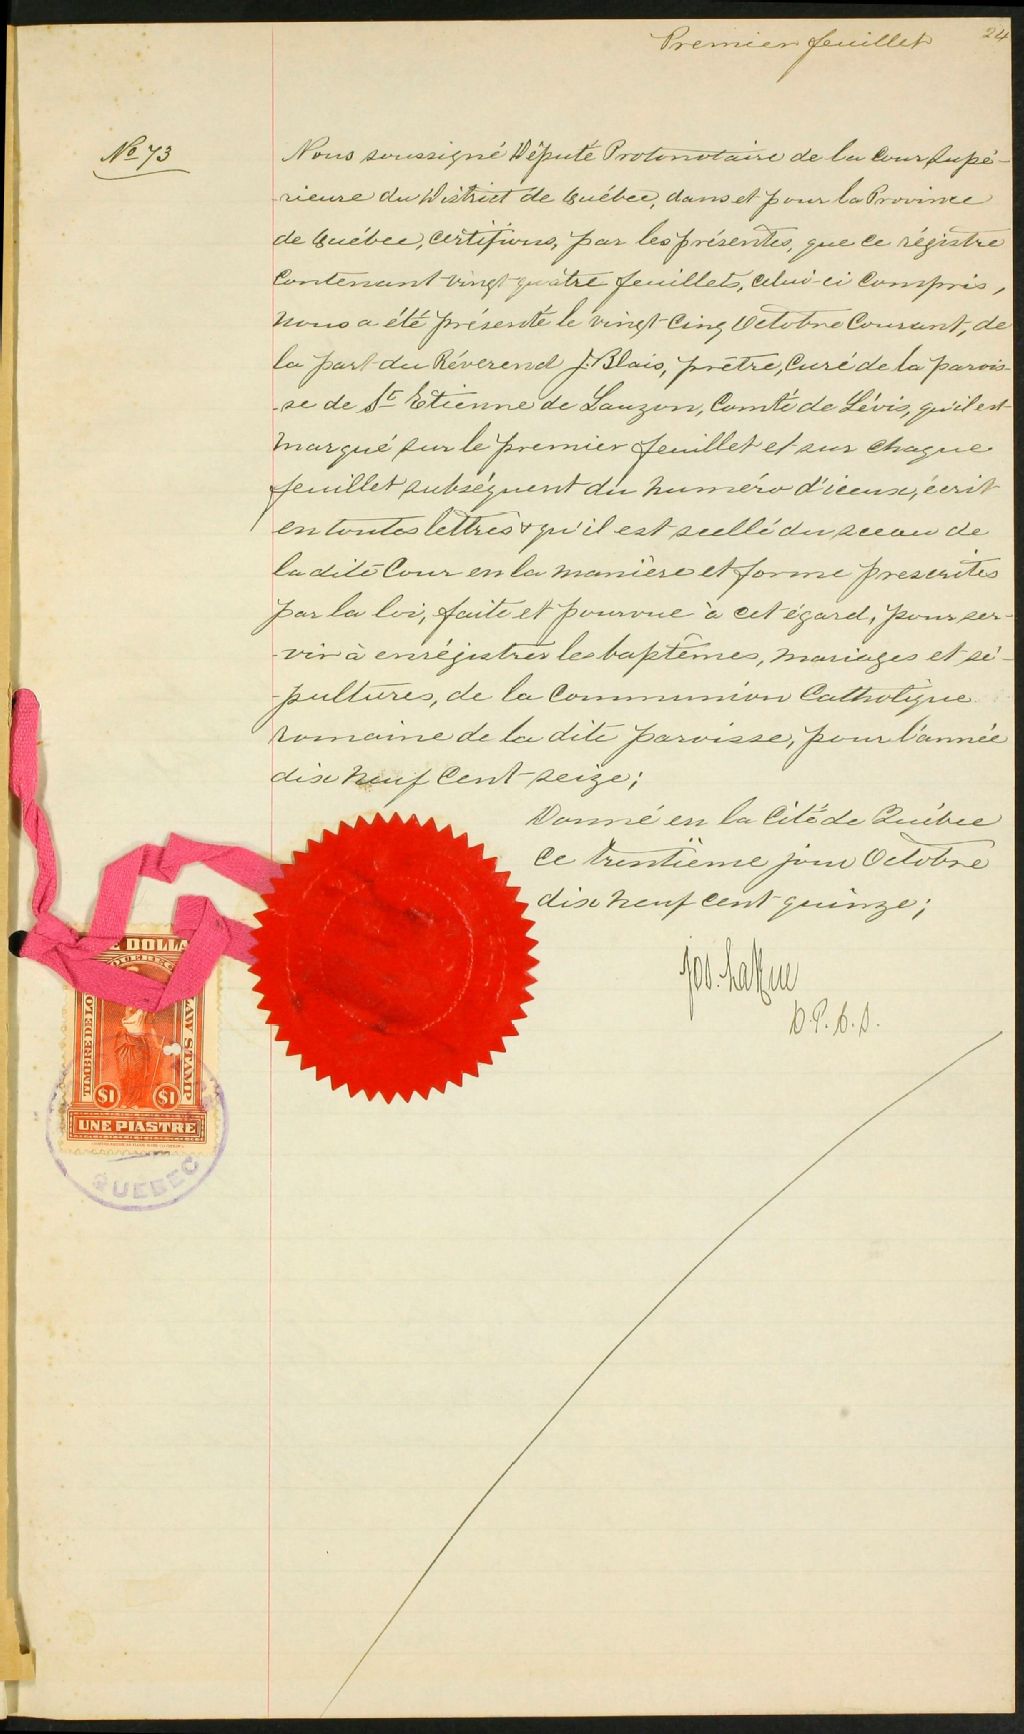 Premier feuillet
24
No 73
Nous soussigné Député Protonotaire de la Cour Supé-
-rieure du District de Québec, dans et pour la Province
de Québec, certifions, par les présentes, que ce régistre
contenant vingt quatre feuillets, celui-ci compris,
nous a été présenté le vingt-cinq Octobre courant, de
la part du Réverend J. Blais, prêtre, curé de la parois-
-se de St Etienne de Lauzon, Comté de Lévis, qu'il est
marqué sur le premier feuillet et sur chaque
feuillet subséquent du numéro d'iceux, écrit
en toutes lettres & qu'il est scellé du sceau de
la dite Cour en la manière et forme prescrites
par la loi, faite et pourvue à cet égard, pour ser-
-vir à enrégistrer les baptêmes, mariages et sé-
-pultures, de la Communion Catholique
romaine de la dite paroisse, pour l'année
dix neuf cent-seize;
Donné en la Cité de Québec
ce trentième jour Octobre
dix neuf cent quinze;
Jos. LaRue
D. P. C. S.
E DOLLA
QUEBEC
TIMBRE DE LO
LAW STAMP
$1 $1
UNE PIASTRE
QUEBEC